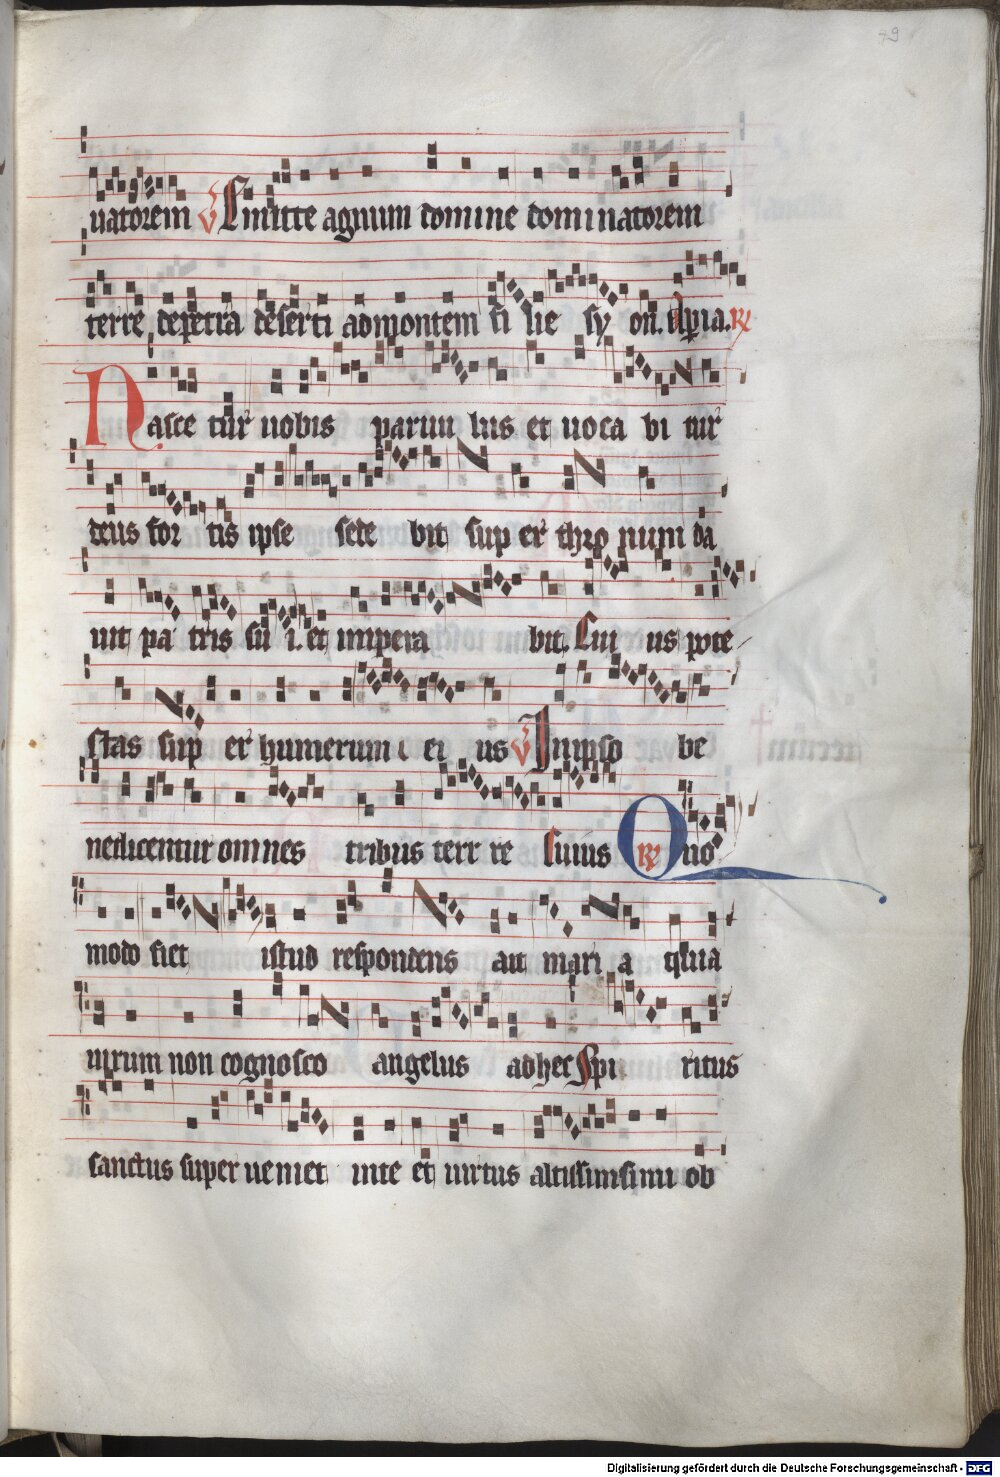 79
uatorem ℣ Emitte agnum domine domi natorem
terre depetra deserti admontem fi lie sy on. Aperia. ℟
Nasce tur uobis paruu lus et uoca bi tur
deus for tis ipse sede bit sup er thro num da
uit pa tris su i. et impera bit. Cui us pote
stas sup er humerum ei us ℣ Inipso be
nedicentur omnes tribus terr re Cuius ℟ Quo
modo fiet istud respondens ait mari a quia
uirum non cognosco angelus adhec Spi ritus
sanctus super ueniet inte et uirtus altissimsimi ob
Digitalisierung gefördert durch die Deutsche Forschungsgemeinschaft - DFG